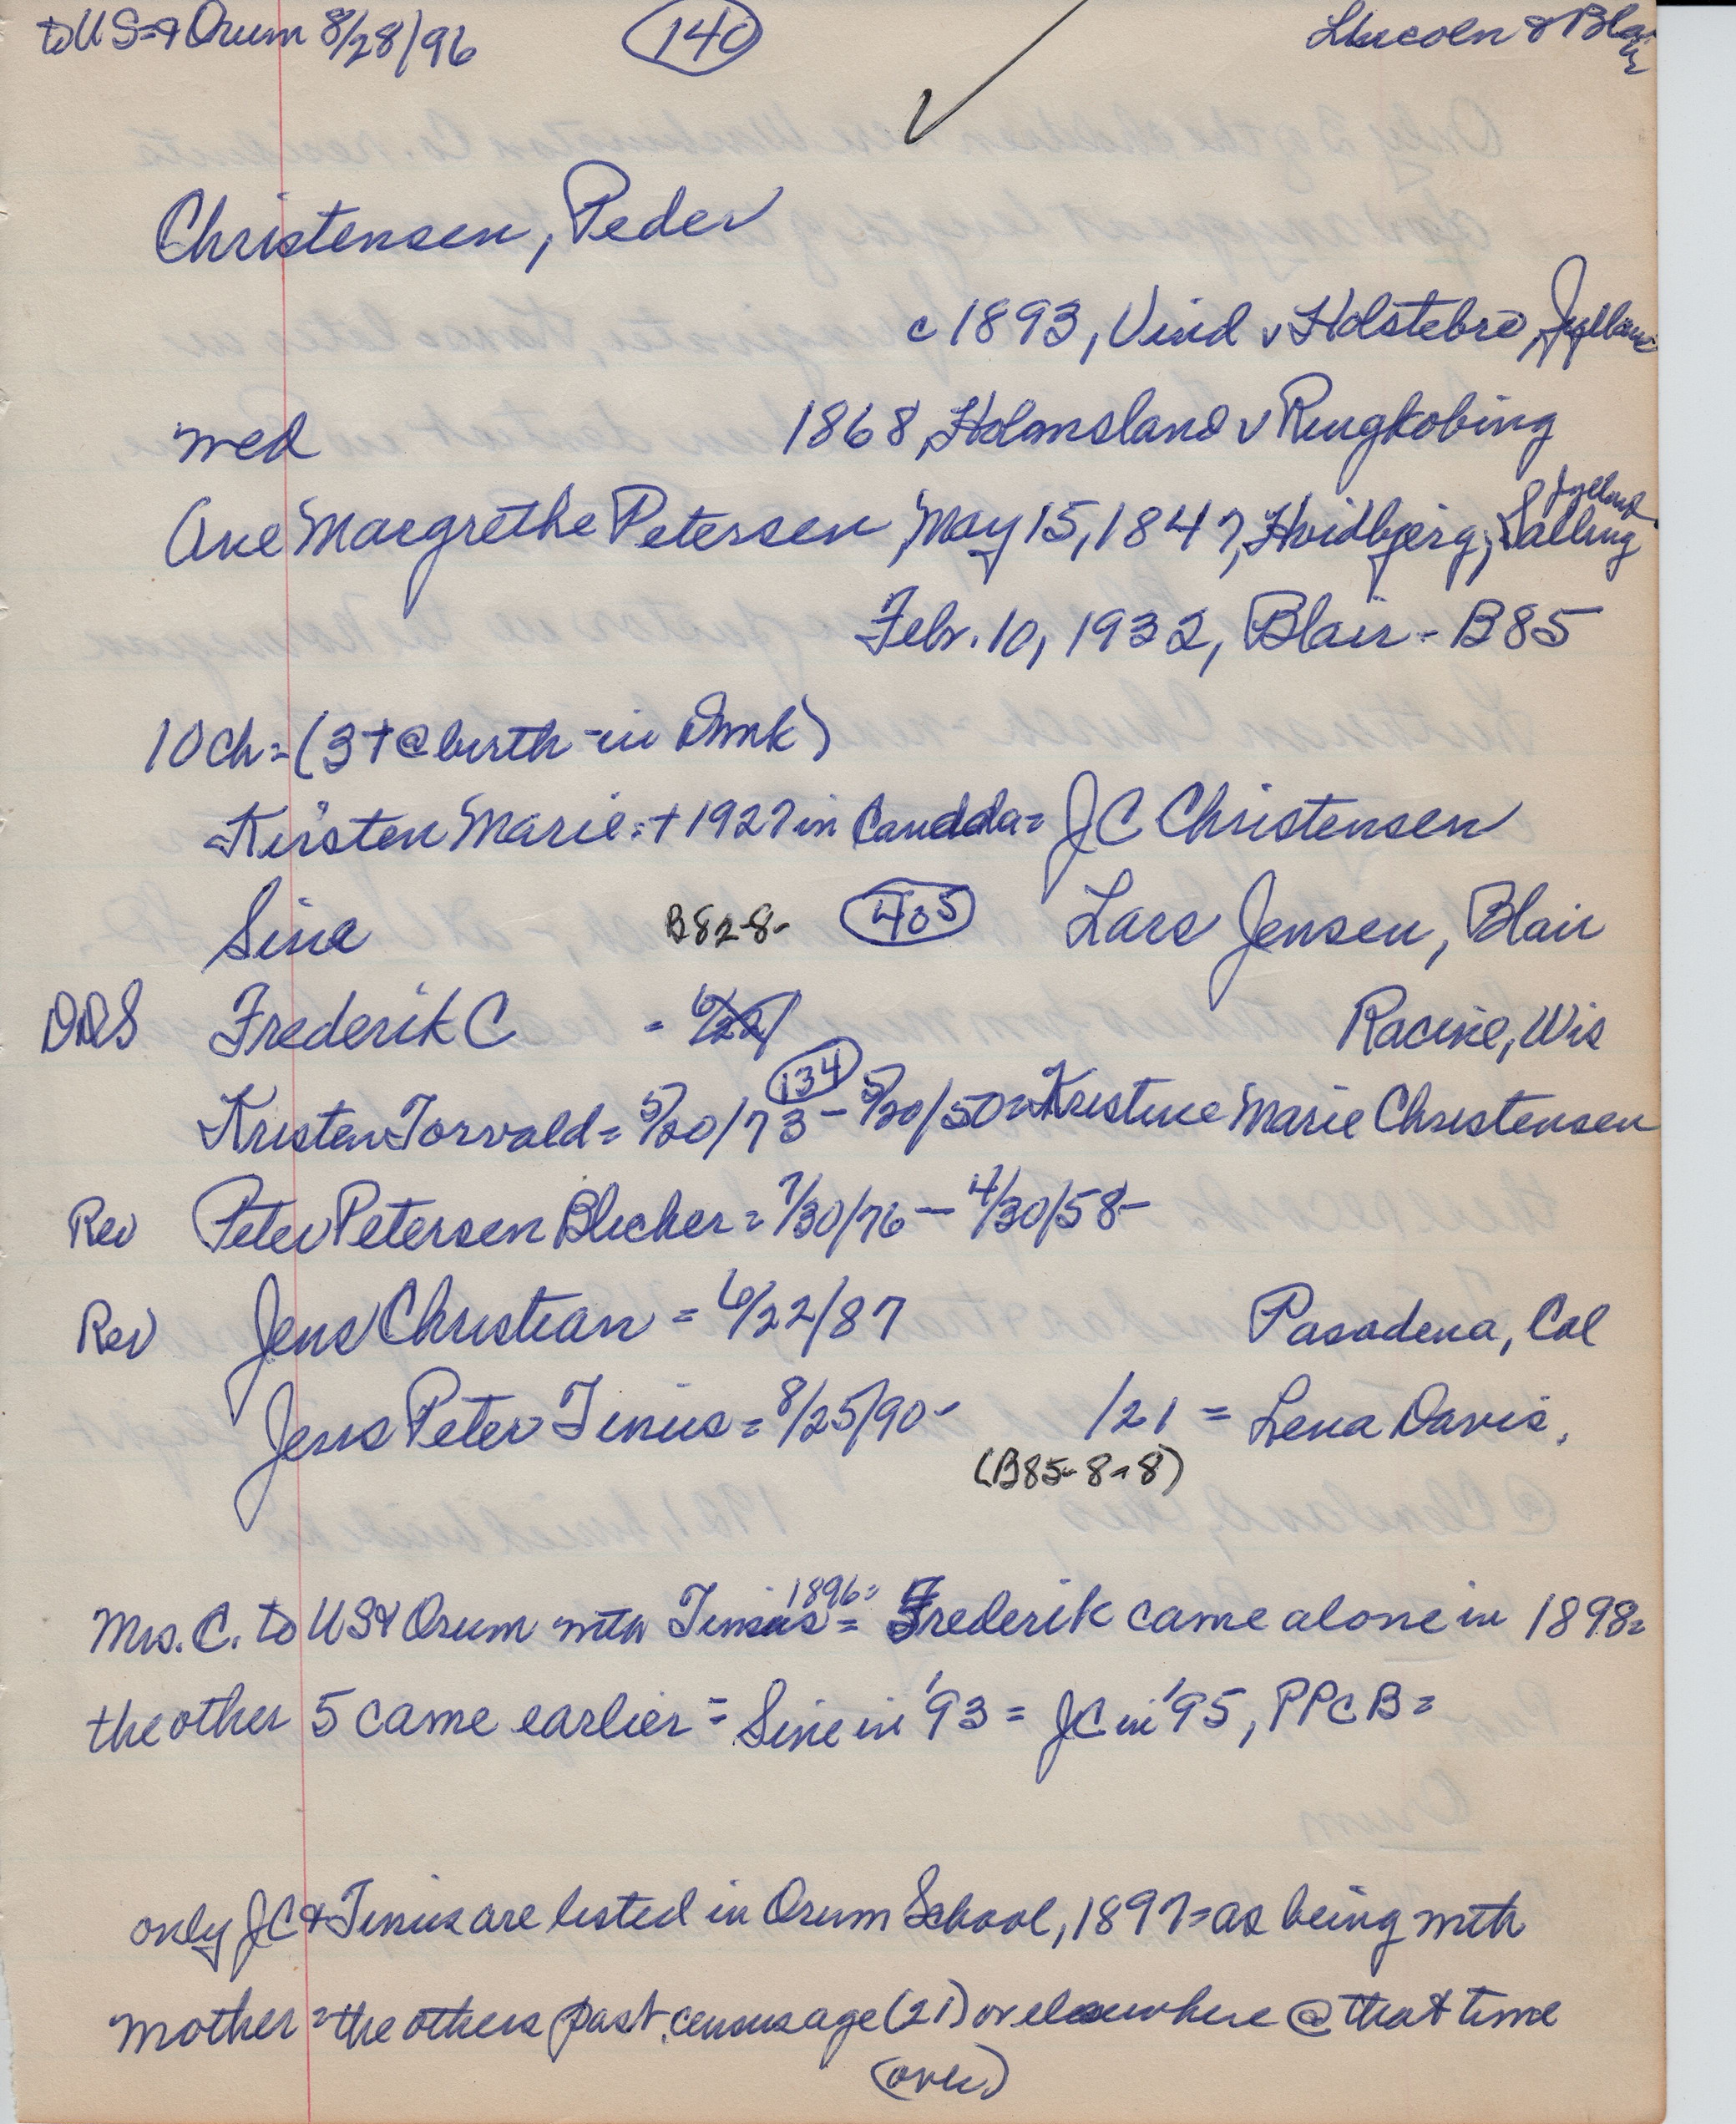 to US & Orum 8/28/96 140 Lincoln & Blair
Christensen, Peder
c 1893, Vind v Holstebro, Jylland
med 1868, Holmsland v Ringkobing
Ane Margrethe Petersen, May 15, 1847, Hvidbjerg, Salling Jylland
Febr. 10, 1932, Blair - B85
10 ch = (3 + @ birth - in Dmk)
Kirsten Marie = + 1927 in Candda = JC Christensen
Sine B82-8- 405 Lars Jensen, Blair
DDS Frederik C - Racine, Wis
134
Kristen Torvald = 5/20/73 - 5/20/50 = Kristine Marie Christensen
Rev Peter Petersen Blicher = 7/30/76 - 4/30/58-
Rev Jens Christian = 6/22/87 Pasadena, Cal
Jens Peter Tinius = 8/25/90- /21 = Lena Davis,
(B85-8-8)
Mrs. C. to US & Orum with Tinius = 1896 = Frederik came alone in 1898 =
the other 5 came earlier = Sine in '93 = JC in '95, PPCB =
only JC & Tinius are listed in Orum School, 1897 = as being with
mother = the others past census age (21) or elsewhere @ that time
(over)